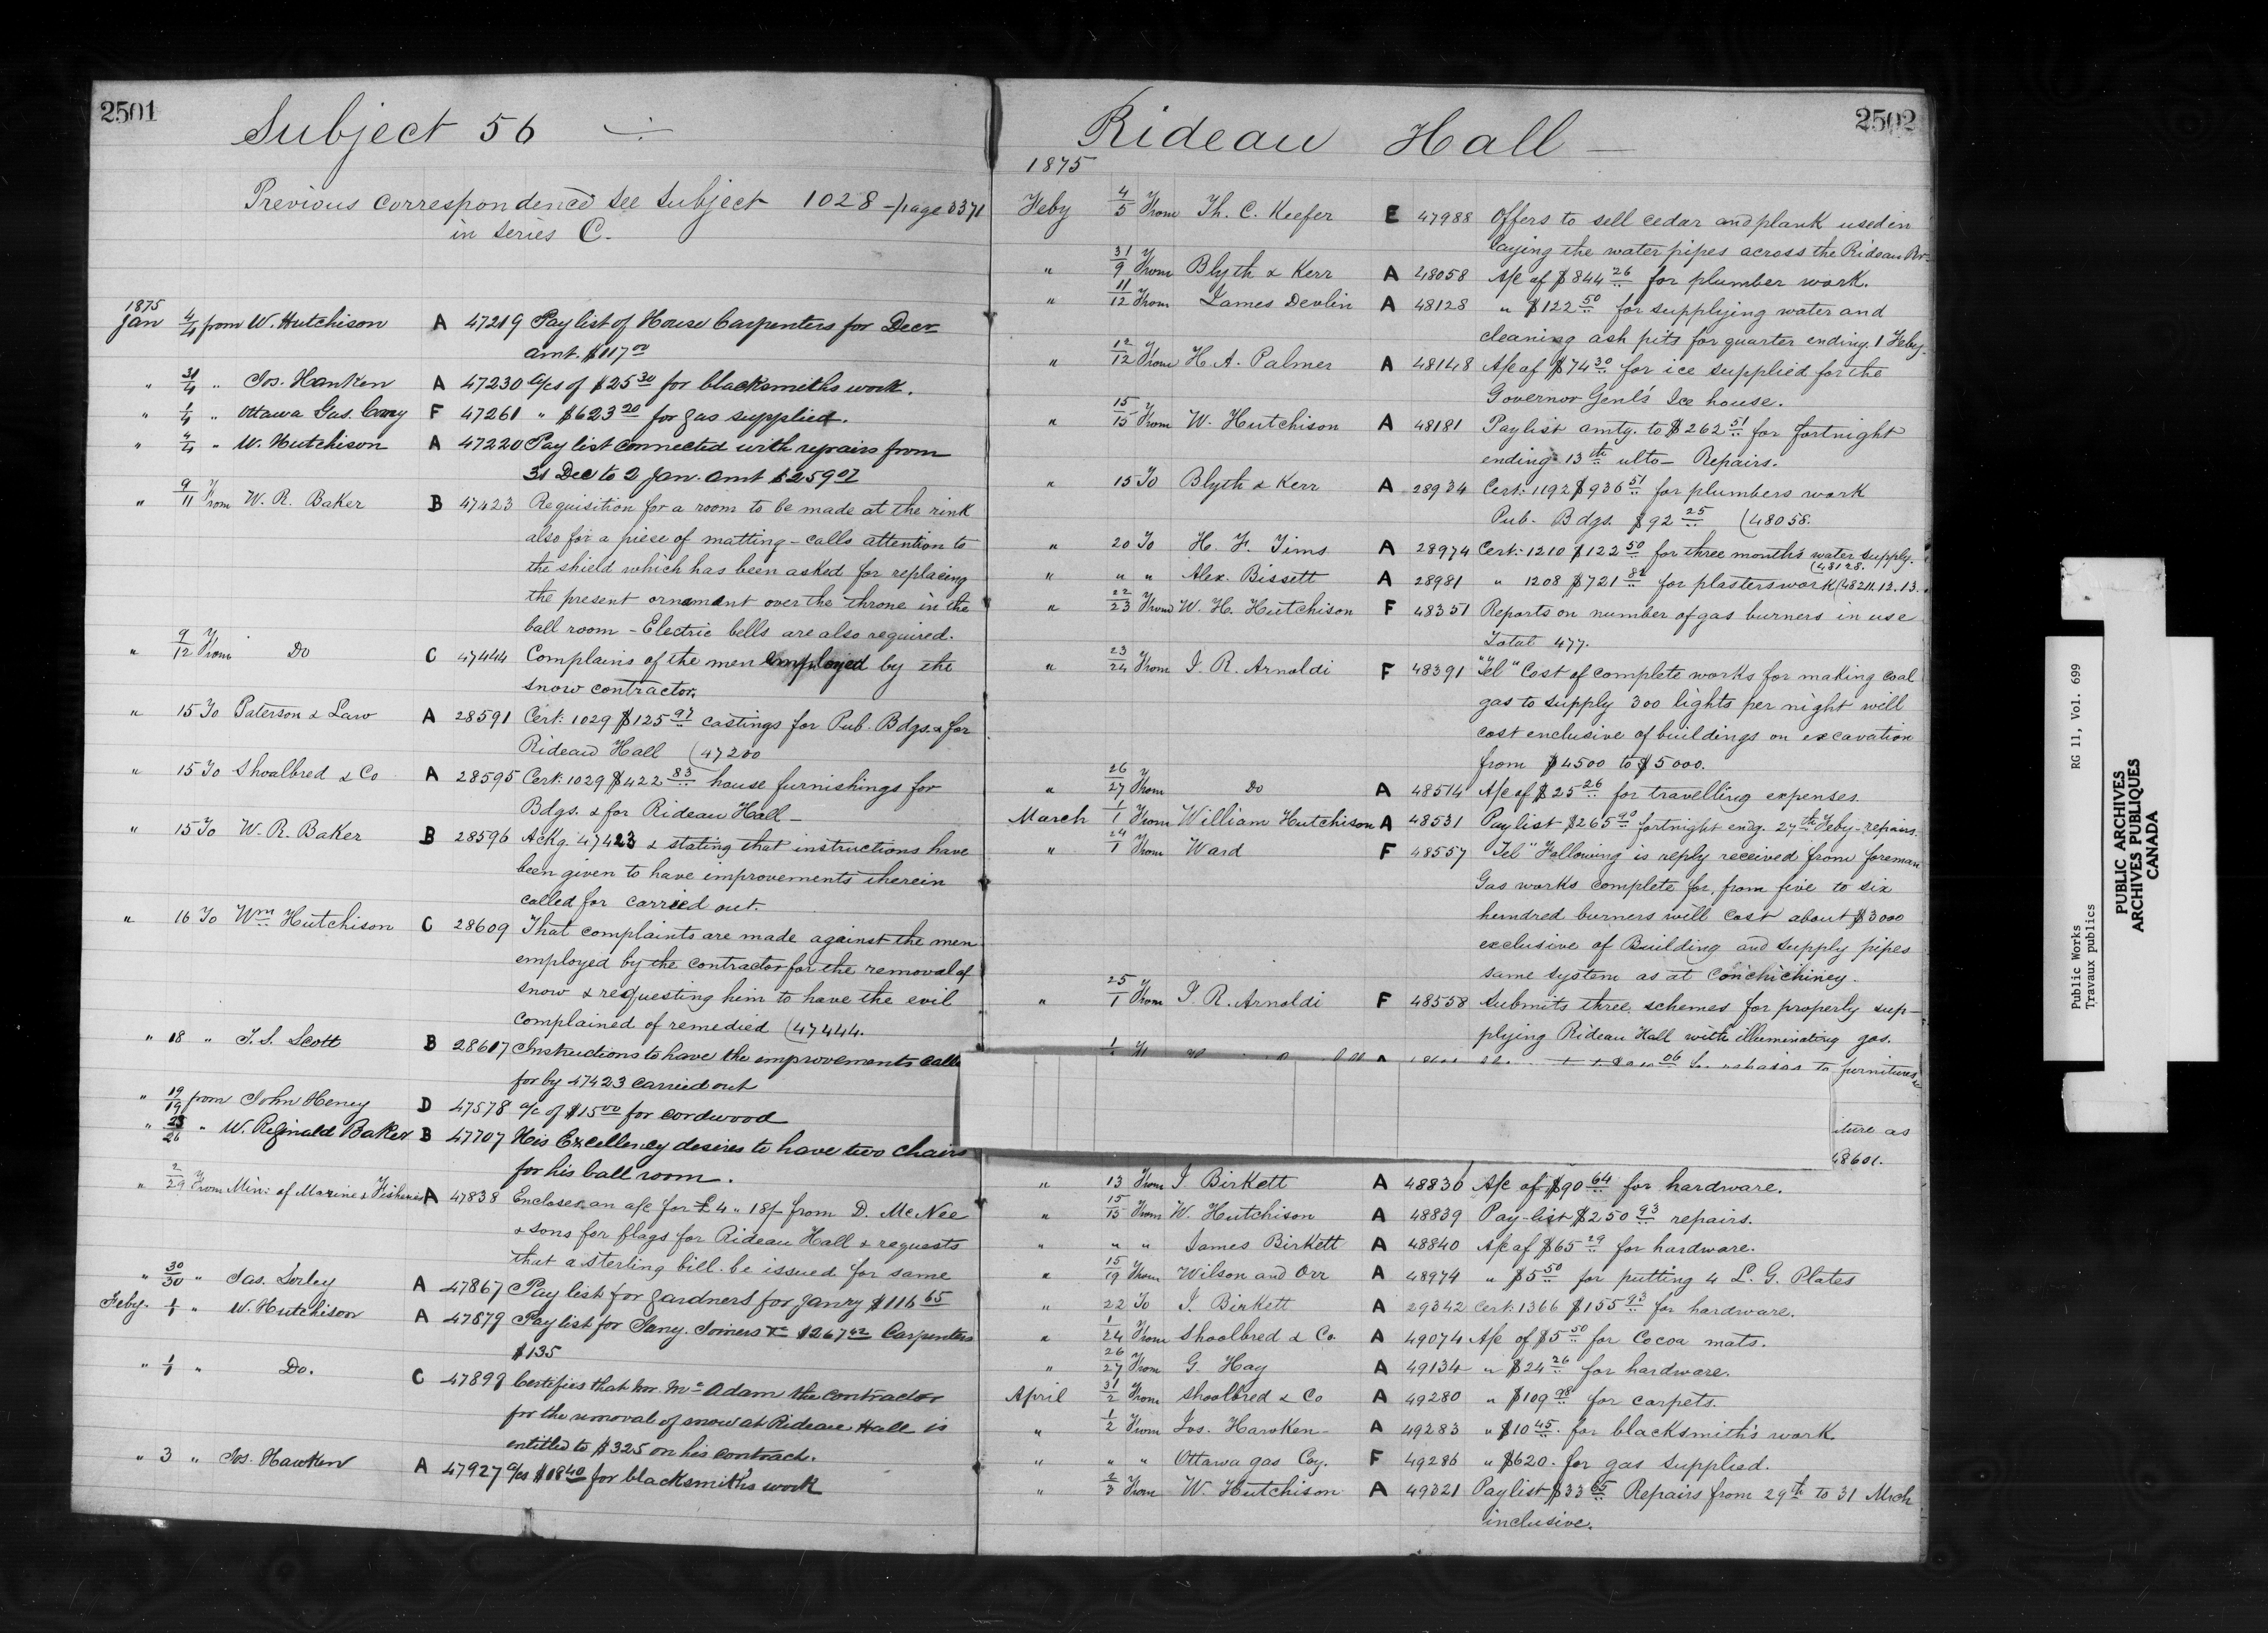 2501
Subject 56
Previous correspondence see Subject 1028 - page 3371
in series C.
1875
Jan 4/4 from W. Hutchison A 47219 Pay list of House Carpenters for Decr
amt. $117 00
" 31/4 " Jos. Hanken A 47230 a/cs of $25 30 for blacksmiths work.
" 1/4 " Ottawa Gas. Comy F 47261 " $623 20 for gas supplied.
" 4/4 " W. Hutchison A 47220 Pay list connected with repairs from
31 Dec to 2 Jan. amt $259 07
" 9/11 From W. R. Baker B 47423 Requisition for a room to be made at the rink
also for a piese of matting - calls attention to
the shield which has been asked for replacing
the present ornament over the throne in the
ball room - Electric bells are also required.
" 9/12 From Do C 47444 Complains of the men employed by the
snow contractor.
" 15 To Paterson & Law A 28591 Cert: 1029 $125 97 castings for Pub. Bdgs. & for
Rideau Hall (47200
" 15 To Shoolbred & Co A 28595 Cert: 1029 $422 83 house furnishings for
Bdgs. & for Rideau Hall -
" 15 To W. R. Baker B 28596 Ackg. 47423 & stating that instructions have
been given to have improvements therein
called for carried out.
" 16 To Wm Hutchison C 28609 That complaints are made against the men
employed by the contractor for the removal of
snow & requesting him to have the evil
complained of remedied (47444.
" 18 " T. S. Scott B 28617 Instructions to have the improvements calle
for by 47423 carried out
" 19/19 from John Heney D 47578 a/c of $15 00 for cordwood
" 25/26 " W. Reginald Baker B 47707 His Excellency desires to have two chairs
for his ball room.
" 2/29 From Min: of Marine & Fisheries A 47838 Encloses an a/c for £4 " 18/- from D. McNee
& sons for flags for Rideau Hall & requests
that a sterling bill be issued for same
" 30/30 " Jas. Sorley A 47867 Pay list for gardners for Janry $116 65
Feby. 1/1 " W. Hutchison A 47879 Pay list for Jany. Joiners &c $267 42 Carpenters
$135
" 1/1 " Do. C 47899 Certifies that Mr. McAdam the contractor
for the removal of snow at Rideau Hall is
entitled to $325 on his contract.
" 3 " Jos. Hawken A 47927 a/cs $18 40 for blacksmith's work
2502
Rideau Hall -
1875
Feby 4/5 From Th. C. Keefer E 47988 Offers to sell cedar and plank used in
laying the water pipes across the Rideau Rvr
" 31/9 From Blyth & Kerr A 48058 A/c of $844 26 for plumber work.
" 11/12 From James Devlin A 48128 " $122 50 for supplying water and
cleaning ash pits for quarter ending 1 Feby.
" 12/12 From H. A. Palmer A 48148 A/c of $74 30 for ice supplied for the
Governor Genl's Ice house.
" 15/15 From W. Hutchison A 48181 Paylist amtg. to $262 51 for fortnight
ending 13th ulto - Repairs.
" 15 To Blyth & Kerr A 28934 Cert: 1192 $936 51 for plumbers work
Pub. Bdgs. $92 25 (48058.
" 20 To H. F. Tims A 28974 Cert: 1210 $122 50 for three months water supply.
(48128.
" " " Alex. Bissett A 28981 " 1208 $721 82 for plasterswork (48211.12.13.
" 22/23 From W. H. Hutchison F 48351 Reports on number of gas burners in use
Total 477.
" 23/24 From J. R. Arnoldi F 48391 "Tel" Cost of complete works for making coal
gas to supply 300 lights per night will
cost enclusive of buildings on excavation
from $4500 to $5000.
" 26/27 From Do A 48514 A/c of $25 26 for travelling expenses.
March 1/1 From William Hutchison A 48531 Paylist $265 90 fortnight endg. 27th Feby - repairs.
" 24/1 From Ward F 48557 Tel" Following is reply received from foreman
Gas works complete for, from five to six
hundred burners will cost about $3000
exclusive of Building and supply pipes
same system as at Conchichiney.
" 25/1 From J. R. Arnoldi F 48558 Submits three schemes for properly sup-
plying Rideau Hall with illuminating gas.
furnitures
iture as
48601.
" 13 From J. Birkett A 48830 A/c of $90 64 for hardware.
" 15/15 From W. Hutchison A 48839 Pay-list $250 93 repairs.
" " " James Birkett A 48840 A/c of $65 29 for hardware.
" 15/19 From Wilson and Orr A 48974 " $5 50 for putting 4 L. G. Plates
" 22 To J. Birkett A 29342 Cert: 1366 $155 93 for hardware.
" 1/24 From Shoolbred & Co A 49074 A/c of $5 50 for Cocoa mats.
" 26/27 From G. Hay A 49134 " $24 26 for hardware.
April 31/2 From Shoolbred & Co A 49280 " $109 98 for carpets.
" 1/2 From Jos. Hawken - A 49283 " $10 45 for blacksmith's work
" " " Ottawa gas Coy. F 49286 " $620. for gas supplied.
" 2/3 From W. Hutchison A 49321 Paylist $33 65 Repairs from 29th to 31 Mrch
inclusive.
Public Works RG 11, Vol. 699
Travaux publics
PUBLIC ARCHIVES
ARCHIVES PUBLIQUES
CANADA